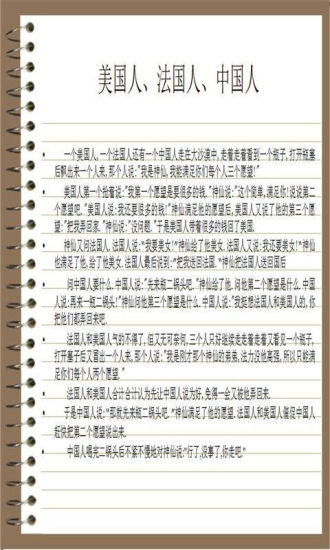 美国人、法国人、中国人
一个美国人,一个法国人还有一个中国人走在大沙漠中,走着走着看到一个瓶子,打开瓶塞
后飘出来一个人来,那个人说:"我是神仙,我能满足你们每个人三个愿望!"
美国人第一个抢着说:"我第一个愿望是要很多的钱."神仙说:"这个简单,满足你!说说第二
个愿望吧."美国人说:我还要很多的钱!"神仙满足他的愿望后,美国人又说了他的第三个愿
望:"把我弄回家."神仙说:"没问题."于是美国人带着很多的钱回了美国.
神仙又问法国人,法国人说:"我要美女!"神仙给了他美女.法国人又说:我还要美女!"神仙
也满足了他,给了他美女.法国人最后说到:"把我送回法国."神仙把法国人送回国后
问中国人要什么.中国人说:"先来一瓶二锅头吧."神仙给了他.问他第二个愿望是什么.中国
人说:再来一瓶二锅头!"神仙问他第三个愿望是什么.中国人说:"我挺想法国人和美国人的,你
把他们都弄回来吧.
法国人和美国人气的不得了,但又无可奈何,三个人只好继续走走着走着又看见一个瓶子,
打开塞子后又冒出一个人来,那个人说:"我是刚才那个神仙的弟弟,法力没他高强,所以只能满
足你们每个人两个愿望."
法国人和美国人合计合计认为先让中国人说为好,免得一会又被他弄回来.
于是中国人说:"那就先来瓶二锅头吧."神仙满足了他的愿望.法国人和美国人催促中国人
赶快把第二个愿望说出来.
中国人喝完二锅头后不紧不慢地对神仙说:"行了,没事了,你走吧."